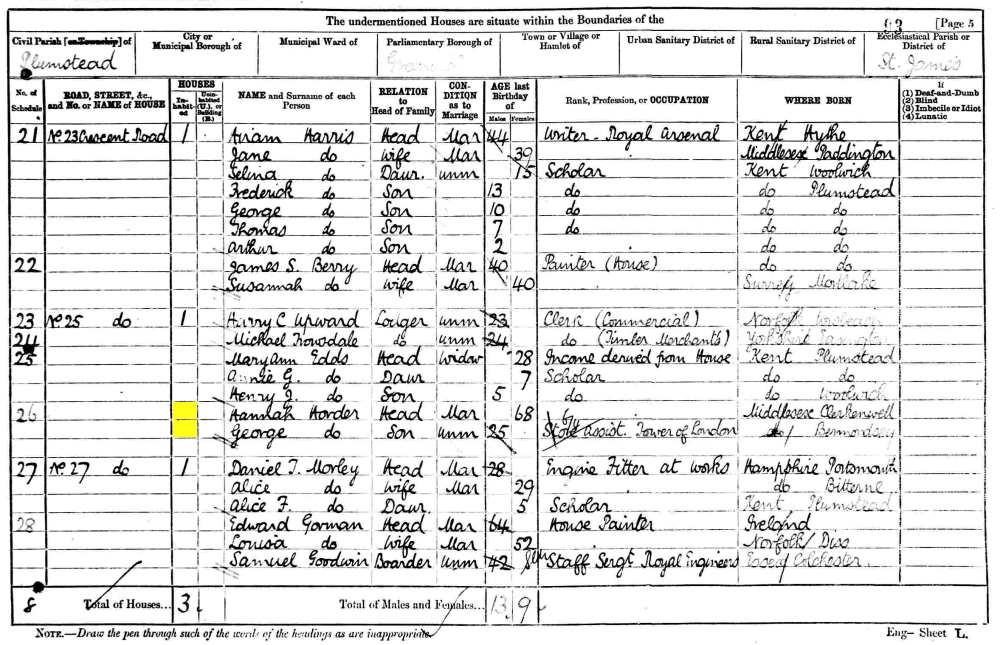 The undermentioned Houses are situate within the Boundaries of the
93 [Page 5
Civil Parish [or Township] of City or Municipal Borough of Municipal Ward of Parliamentary Borough of Town or Village or Hamlet of Urban Sanitary District of Rural Sanitary District of Ecclesiastical Parish or District of
Plumstead St. James
No. of Schedule ROAD, STREET, &c., and No. or NAME of HOUSE HOUSES Inhabited Uninhabited (U.), or Building (B.) NAME and Surname of each Person RELATION to Head of Family CONDITION as to Marriage AGE last Birthday of Males Females Rank, Profession, or OCCUPATION WHERE BORN If (1) Deaf-and-Dumb (2) Blind (3) Imbecile or Idiot (4) Lunatic
21 No. 23 Crescent Road 1 Hiram Harris Head Mar 44 Writer - Royal Arsenal Kent Hythe
Jane do Wife Mar 39 Middlesex Paddington
Selina do Daur. unm 15 Scholar Kent Woolwich
Frederick do Son 13 do do Plumstead
George do Son 10 do do do
Thomas do Son 7 do do do
Arthur do Son 2 do do
22 James S. Berry Head Mar 40 Painter (House) do do
Susannah do Wife Mar 40 Surrey Mortlake
23 No. 25 do 1 Harry C Upward Lodger unm 23 Clerk (Commercial) Norfolk
24 Michael Trowsdale do unm 24 do (Timber Merchants) Yorkshire
25 Mary Ann Edds Head Widow 28 Income derived from House Kent Plumstead
Annie G. do Daur 7 Scholar do do
Henry J. do Son 5 do do Woolwich
26 Hannah Horder Head Mar 68 Middlesex Clerkenwell
George do Son unm 25 Store Assist. Tower of London do Bermondsey
27 No. 27 do 1 Daniel T. Morley Head Mar 28 Engine Fitter at works Hampshire Portsmouth
Alice do Wife Mar 29 do Bitterne
Alice F. do Daur 5 Scholar Kent Plumstead
28 Edward Gorman Head Mar 64 House Painter Ireland
Louisa do Wife Mar 52 Norfolk Diss
Samuel Goodwin Boarder Unm 42 Staff Sergt Royal Engineers Essex Colchester
8 Total of Houses... 3 Total of Males and Females... 13 9
NOTE.—Draw the pen through such of the words of the headings as are inappropriate.
Eng— Sheet L.